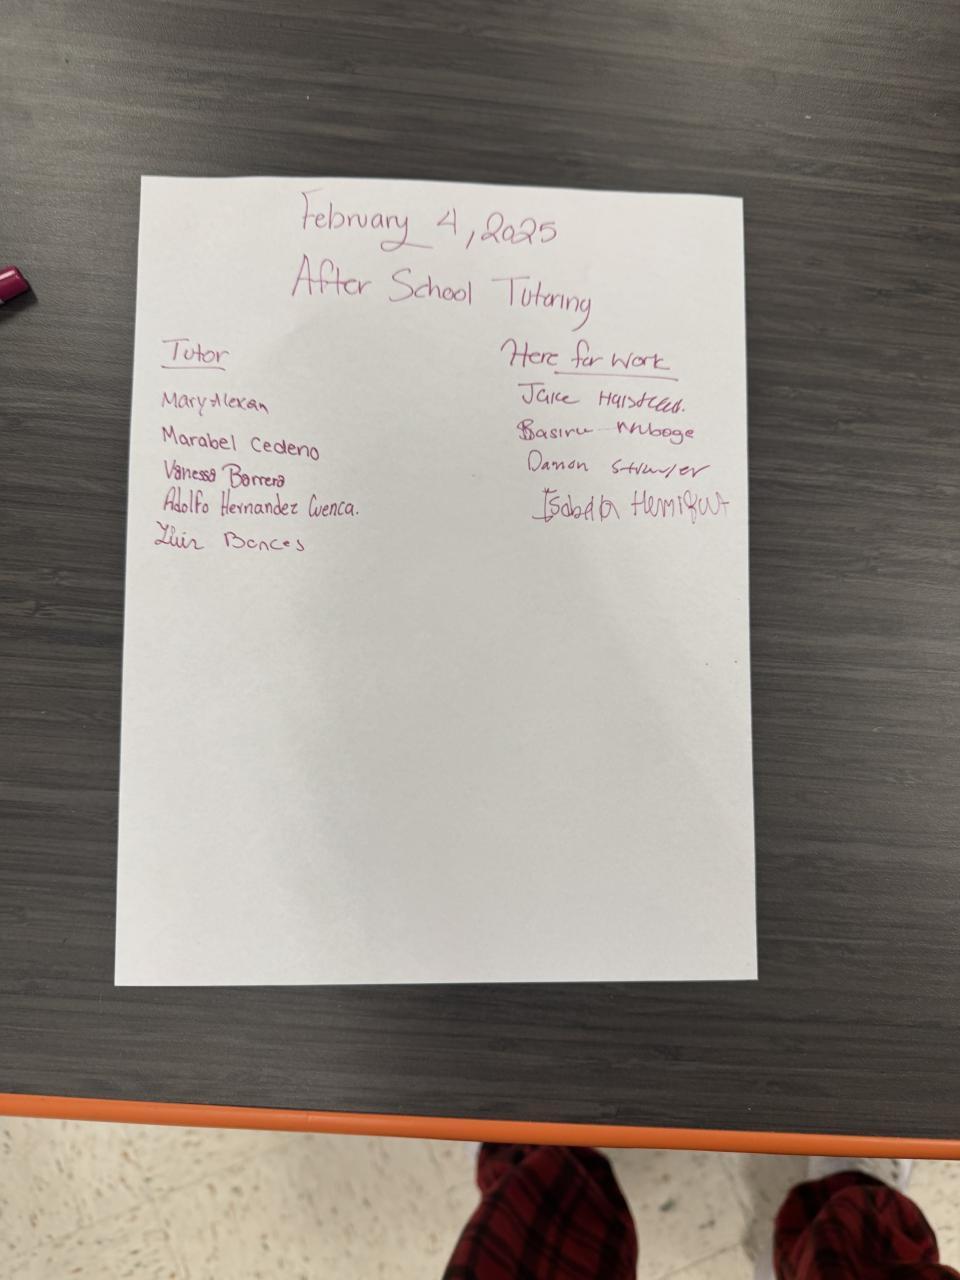 February 4, 2025
After School Tutoring
Tutor
Mary Alexan
Marabel Cedeno
Vanessa Barrera
Adolfo Hernandez Cuenca.
Bances
Here for work
Jake
Basiru Mboge
Damon
Isabella